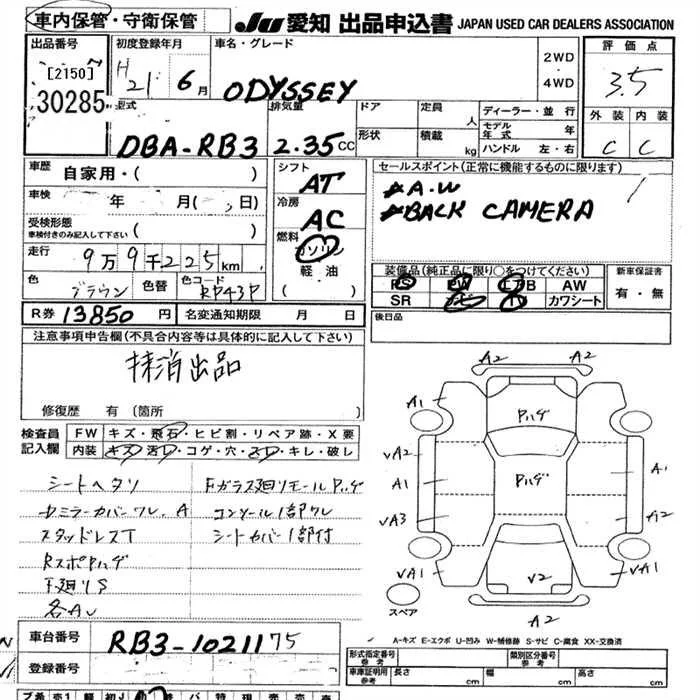 車内保管・守衛保管 JU 愛知 出品申込書 JAPAN USED CAR DEALERS ASSOCIATION
出品番号 初度登録年月 車名・グレード 評価点
[2150] H 21 6月 ODYSSEY 2WD ・ 4WD 3.5
30285
型式 排気量 ドア 定員 人 ディーラー・並行 外装 内装
DBA-RB3 2.35CC 形状 積載 kg モデル年式 年 C C
ハンドル 左・右
車歴 自家用・( ) シフト AT セールスポイント(正常に機能するものに限ります)
車検 年 月( 、 )日 冷房 AC A.W
BACK CAMERA
受検形態
車検付きのみ記入して下さい ( ) 燃料 ガソリン
走行 9万9千225km 軽・油
色 ブラウン 色替 色コード RP43P ( )
装備品(純正品に限り○をつけてください) 新車保証書
PS PW エアB AW 有・無
SR カワシート
R券 13850円 名変通知期限 月 日 後日品
注意事項申告欄(不具合内容等は具体的に記入して下さい)
抹消出品
修復歴 有 (箇所 )
検査員記入欄 FW キズ・飛石・ヒビ割・リペア跡・X要
内装 キズ・汚レ・コゲ・穴・スレ・キレ・破レ
シートヘタリ Fガラス廻リモールPハゲ
ミラーカバーワレ.A コンソール1部ワレ
スタッドレスT シートカバー1部付
RスポPハゲ
下廻リS
各AU
A2 A2
A1 Pハゲ
VA2 A1 Pハゲ A1
VA3 A12
VA1 V2 VA1
スペア A2
A-キズ E-エクボ U-凹み W-補修跡 S-サビ C-腐食 XX-交換済
車台番号 RB3-1021175
登録番号
形式指定番号 参考 類別区分番号 参考
車庫証明用 参考 長さ cm 幅 cm 高さ cm